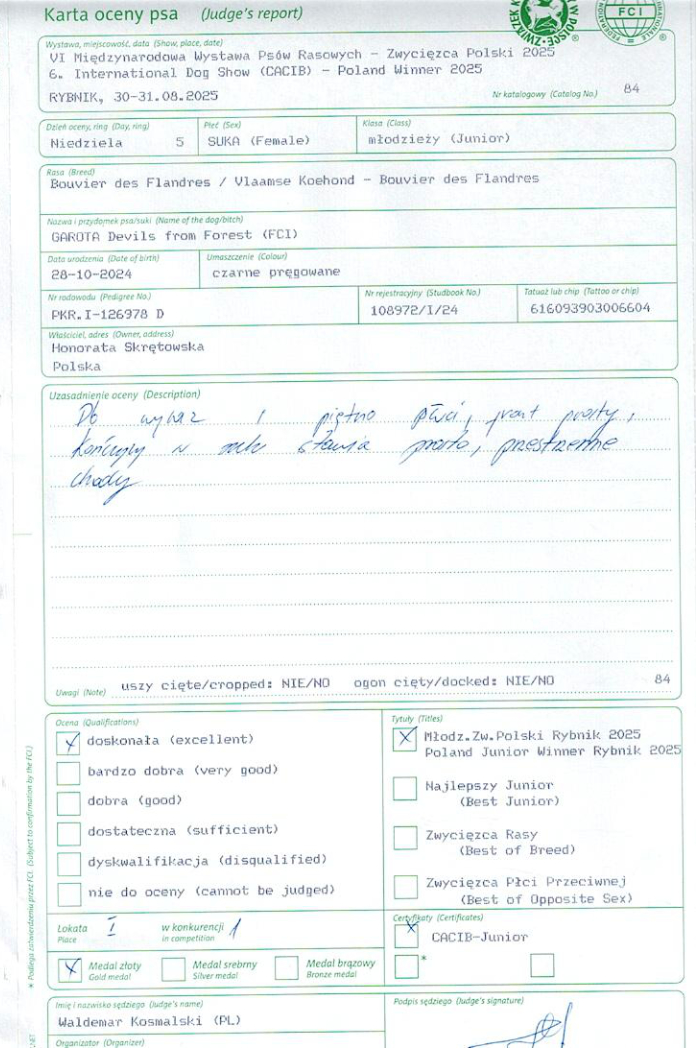 Karta oceny psa (Judge's report)
FCI
Wystawa, miejscowość, data (Show, place, date)
VI Międzynarodowa Wystawa Psów Rasowych - Zwycięzca Polski 2025
6. International Dog Show (CACIB) - Poland Winner 2025
RYBNIK, 30-31.08.2025
Nr katalogowy (Catalog No.) 84
Dzień oceny, ring (Day, ring) Płeć (Sex) Klasa (Class)
Niedziela 5 SUKA (Female) młodzieży (Junior)
Rasa (Breed)
Bouvier des Flandres / Vlaamse Koehond - Bouvier des Flandres
Nazwa i przydomek psa/suki (Name of the dog/bitch)
GAROTA Devils from Forest (FCI)
Data urodzenia (Date of birth) Umaszczenie (Colour)
28-10-2024 czarne pręgowane
Nr rodowodu (Pedigree No.) Nr rejestracyjny (Studbook No.) Tatuaż lub chip (Tattoo or chip)
PKR.I-126978 D 108972/I/24 616093903006604
Właściciel, adres (Owner, address)
Honorata Skrętowska
Polska
Uzasadnienie oceny (Description)
Db wyraz i piętno płci, front prosty,
kończyny w stawia prosto, przestrzenne
chody
Uwagi (Note) uszy cięte/cropped: NIE/NO ogon cięty/docked: NIE/NO 84
Ocena (Qualifications)
doskonała (excellent)
bardzo dobra (very good)
dobra (good)
dostateczna (sufficient)
dyskwalifikacja (disqualified)
nie do oceny (cannot be judged)
Lokata I w konkurencji 1
Place in competition
Medal złoty Medal srebrny Medal brązowy
Gold medal Silver medal Bronze medal
Tytuły (Titles)
Młodz.Zw.Polski Rybnik 2025
Poland Junior Winner Rybnik 2025
Najlepszy Junior
(Best Junior)
Zwycięzca Rasy
(Best of Breed)
Zwycięzca Płci Przeciwnej
(Best of Opposite Sex)
Certyfikaty (Certificates)
CACIB-Junior
*
* Podlega zatwierdzeniu przez FCI. (Subject to confirmation by the FCI.)
Imię i nazwisko sędziego (Judge's name)
Waldemar Kosmalski (PL)
Podpis sędziego (Judge's signature)
Organizator (Organizer)